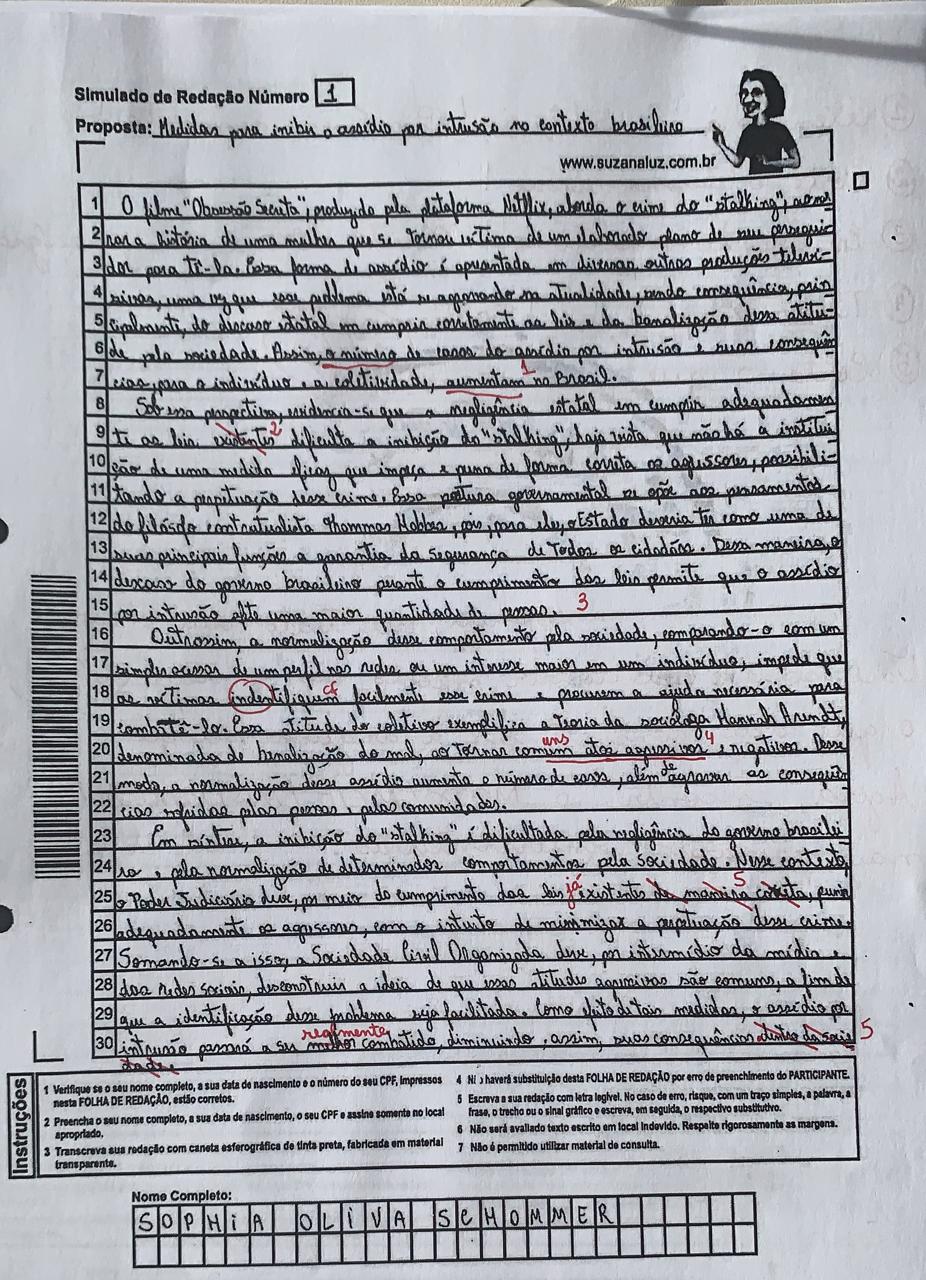 Simulado de Redação Número 1
Proposta: Medidas para inibir o assédio por intrusão no contexto brasileiro
www.suzanaluz.com.br
1 O filme "Obsessão Secreta", produzido pela plataforma Netflix, aborda o crime do "stalking", ao nar
2 rar a história de uma mulher que se tornou vítima de um elaborado plano de seu persegui
3 dor para tê-la. Essa forma de assédio é apresentada em diversas outras produções televi-
4 sivas, uma vez que esse problema está se agravando na atualidade, sendo consequência, prin
5 cipalmente, do descaso estatal em cumprir corretamente as leis e da banalização dessa atitu-
6 de pela sociedade. Assim, o número de casos do assédio por intrusão e suas consequên
1
7 cias, para o indivíduo e a coletividade, aumentam no Brasil.
8 Sob essa perspectiva, evidencia-se que a negligência estatal em cumprir adequadamen
9 te as leis existentes 2 dificulta a inibição do "stalking", haja vista que não há a institui
10 ção de uma medida eficaz que impeça e puna de forma correta os agressores, possibili-
11 tando a perpetuação desse crime. Essa postura governamental se opõe aos pensamentos
12 do filósofo contratualista Thommas Hobbes, pois, para ele, o Estado deveria ter como uma de
13 suas principais funções a garantia da segurança de todos os cidadãos. Dessa maneira, o
14 descaso do governo brasileiro perante o cumprimento das leis permite que o assédio
15 por intrusão afete uma maior quantidade de pessoas. 3
16 Outrossim, a normalização desse comportamento pela sociedade, comparando-o com um
17 simples acessar de um perfil nas redes ou um interesse maior em um indivíduo, impede que
18 as vítimas indentifiquem facilmente esse crime e procurem a ajuda necessária para
19 combatê-lo. Essa atitude do coletivo exemplifica a teoria da socióloga Hannah Arendt,
uns
20 denominada de banalização do mal, ao tornar comum atos agressivos 4 e negativos. Desse
de
21 modo, a normalização desse assédio aumenta o número de casos, além agravar as consequên
22 cias sofridas pelas pessoas e pelas comunidades.
23 Em síntese, a inibição do "stalking" é dificultada pela negligência do governo brasilei
24 ro e pela normalização de determinados comportamentos pela sociedade. Nesse contexto,
já 5
25 o Poder Judiciário deve, por meio do cumprimento das leis existentes de maneira correta, punir
26 adequadamente os agressores, com o intuito de minimizar a perpetuação desse crime.
27 Somando-se a isso, a Sociedade Civil Organizada deve, por intermédio da mídia e
28 das redes sociais, desconstruir a ideia de que essas atitudes agressivas são comuns, a fim de
29 que a identificação desse problema seja facilitada. Como efeito de tais medidas, o assédio por
realmente
30 intrusão passará a ser melhor combatido, diminuindo, assim, suas consequências dentro da socie 5
dade.
Instruções
1 Verifique se o seu nome completo, a sua data de nascimento e o número do seu CPF, impressos
nesta FOLHA DE REDAÇÃO, estão corretos.
2 Preencha o seu nome completo, a sua data de nascimento, o seu CPF e assine somente no local
apropriado.
3 Transcreva sua redação com caneta esferográfica de tinta preta, fabricada em material
transparente.
4 haverá substituição desta FOLHA DE REDAÇÃO por erro de preenchimento do PARTICIPANTE.
5 Escreva a sua redação com letra legível. No caso de erro, risque, com um traço simples, a palavra, a
frase, o trecho ou o sinal gráfico e escreva, em seguida, o respectivo substitutivo.
6 Não será avaliado texto escrito em local indevido. Respeite rigorosamente as margens.
7 Não é permitido utilizar material de consulta.
Nome Completo:
SOPHIA OLIVA SCHOMMER